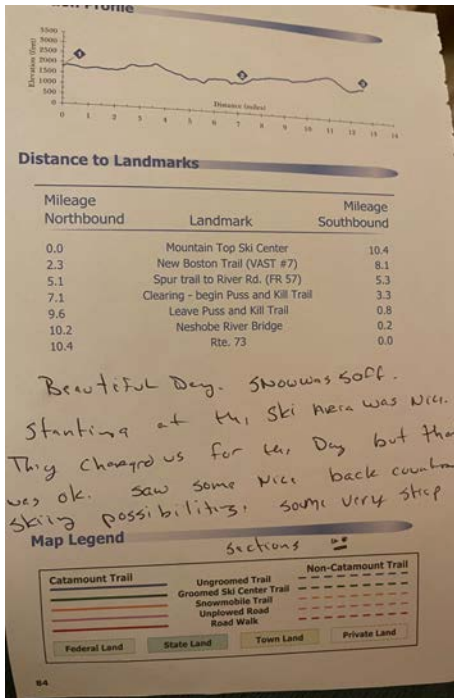 ion Profile
Elevation (feet)
3500
3000
2500
2000
1500
1000
500
0
1
2
3
0 1 2 3 4 5 6 7 8 9 10 11 12 13 14
Distance (miles)
Distance to Landmarks
Mileage Northbound Landmark Mileage Southbound
0.0 Mountain Top Ski Center 10.4
2.3 New Boston Trail (VAST #7) 8.1
5.1 Spur trail to River Rd. (FR 57) 5.3
7.1 Clearing - begin Puss and Kill Trail 3.3
9.6 Leave Puss and Kill Trail 0.8
10.2 Neshobe River Bridge 0.2
10.4 Rte. 73 0.0
Beautiful Day. Snow was soft.
Starting at the Ski Area was Nice.
They charged us for the Day but that
was ok. Saw some Nice back country
skiing possibilities. some very steep
sections
Map Legend
Catamount Trail Non-Catamount Trail
Ungroomed Trail
Groomed Ski Center Trail
Snowmobile Trail
Unplowed Road
Road Walk
Federal Land State Land Town Land Private Land
64